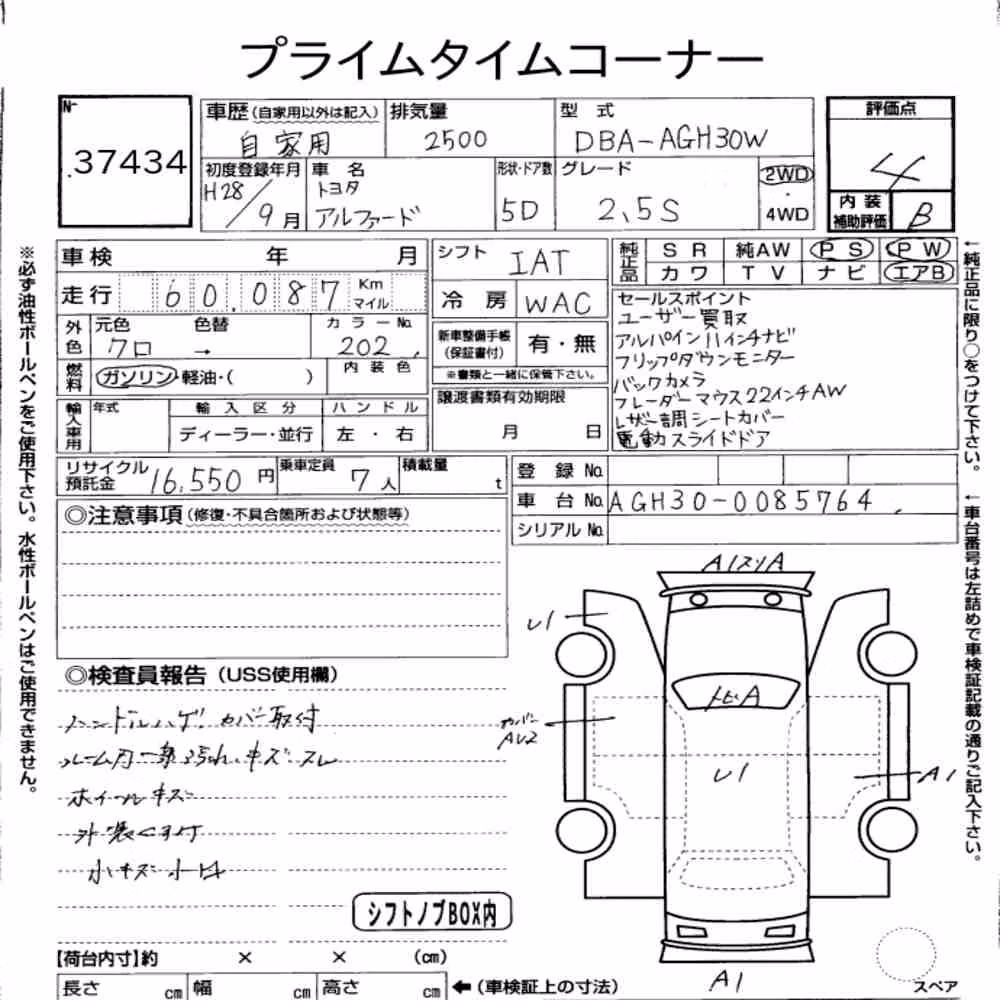 プライムタイムコーナー
N-
37434
車歴(自家用以外は記入)
自家用
排気量
2500
型式
DBA-AGH30W
評価点
4
初度登録年月
H28/9月
車名
トヨタ
アルファード
形状・ドア数
5D
グレード
2.5S
2WD
・
4WD
内装
補助評価
B
車検 年 月
走行 60,087 Km
マイル
シフト
IAT
冷房 WAC
純正品
SR 純AW PS PW
カワ TV ナビ エアB
外色
元色 色替
クロ →
カラーNo.
202
燃料
ガソリン・軽油・( )
内装色
新車整備手帳
(保証書付)
有・無
※書類と一緒に保管下さい。
セールスポイント
ユーザー買取
アルパイン11インチナビ
フリップダウンモニター
バックカメラ
ブレーダーマウス22インチAW
レザー調シートカバー
電動スライドドア
輸入車用
年式
輸入区分
ディーラー・並行
ハンドル
左・右
譲渡書類有効期限
月 日
リサイクル
預託金
16,550円
乗車定員
7人
積載量
t
登録No.
車台No. AGH30-0085764
シリアルNo.
◎注意事項(修復・不具合箇所および状態等)
◎検査員報告(USS使用欄)
ハンドルハゲ カバー取付
ホイールキズ
小キズ
シフトノブBOX内
A1
U1
カバー
AU2
U1
A1
A1
スペア
【荷台内寸】約 × × (cm)
長さ cm 幅 cm 高さ cm ←(車検証上の寸法)
※必ず油性ボールペンをご使用下さい。水性ボールペンはご使用できません。
←純正品に限り○をつけて下さい。
←車台番号は左詰めで車検証記載の通りご記入下さい。